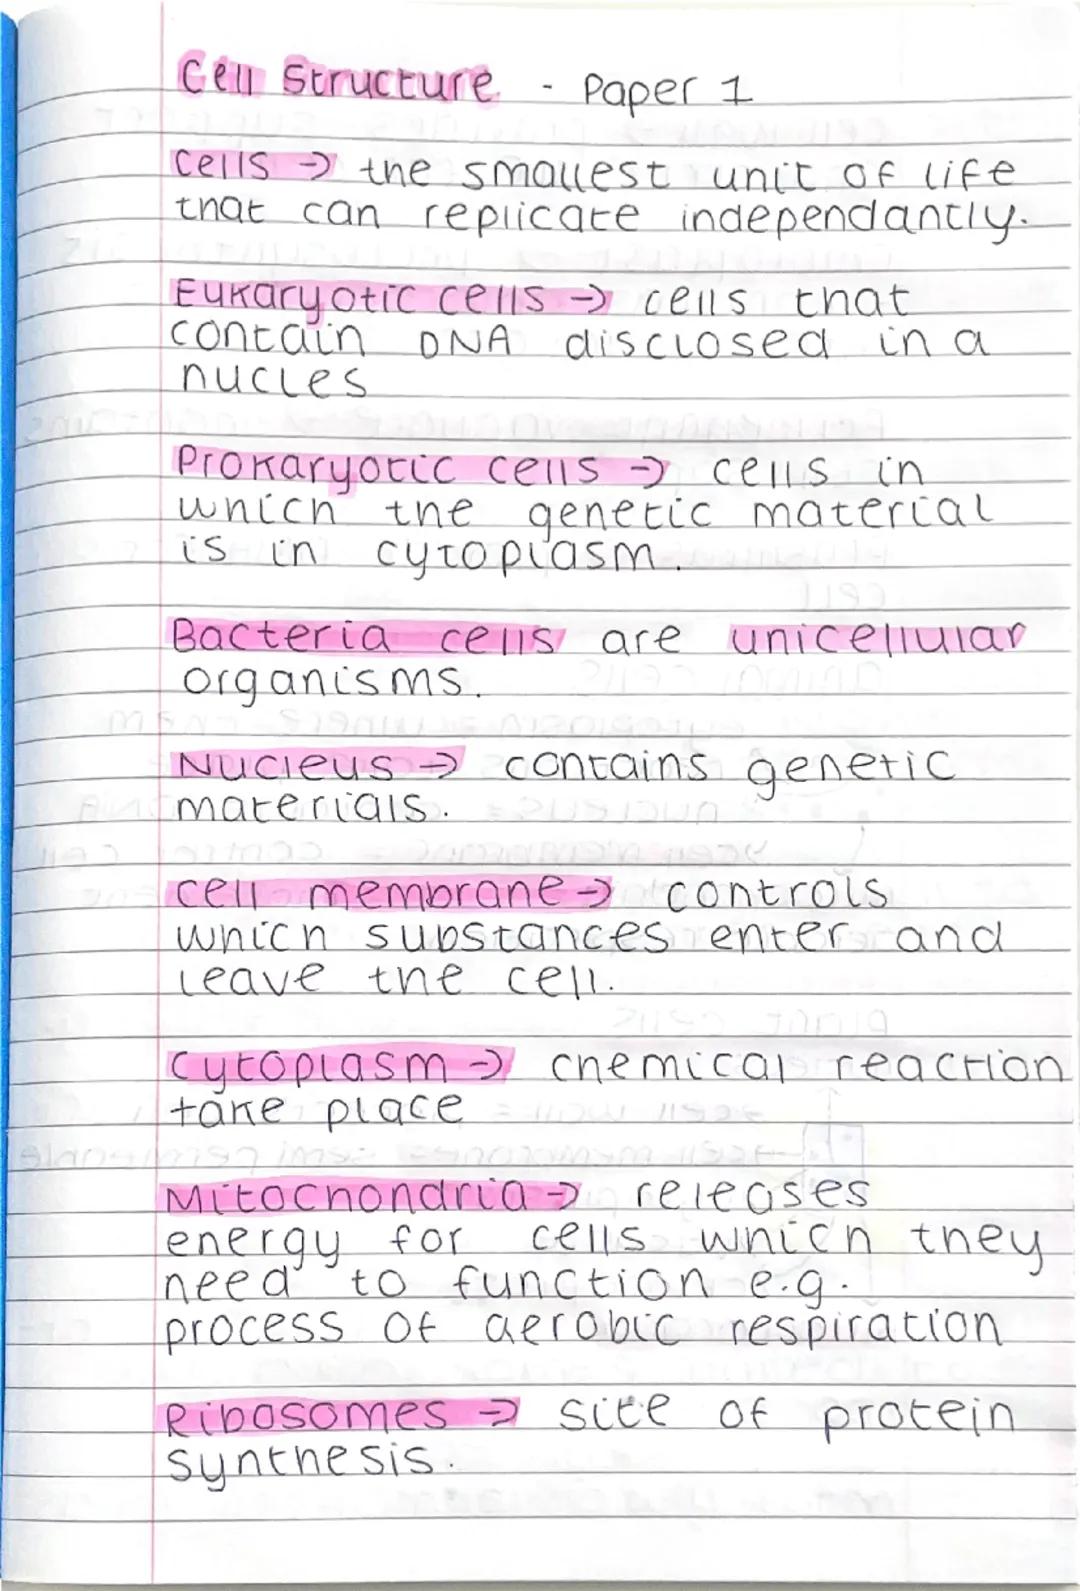 Cell Structure - Paper 1
Cells → the smallest unit of life
that can replicate independantly.
Eukaryotic cells → cells that
contain DNA disclosed in a
nucles
Prokaryotic cells → cells in
which the genetic material
is in cytoplasm.
Bacteria cells are unicellular
organisms.
Nucleus → contains genetic
materials.
cell membrane → controls
which substances enter and
leave the cell.
Cytoplasm → chemical reaction
take place
Mitochondria → releases
energy for cells which they
need to function e.g.
process of aerobic respiration
Ribosomes → site of protein
synthesis.